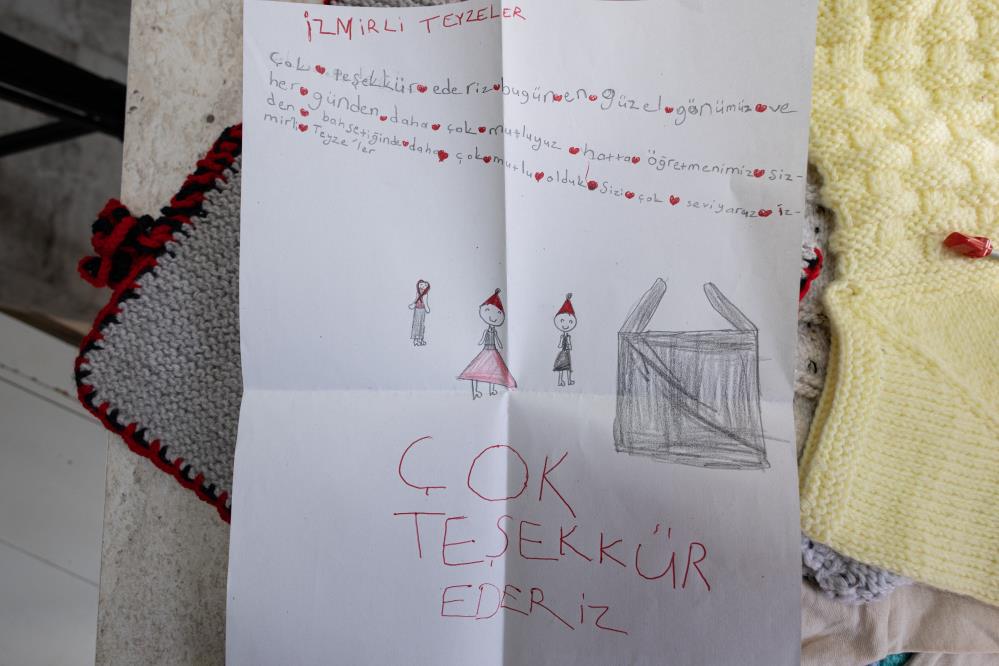 İZMİRLİ TEYZELER
Çok teşekkür ederiz bugün en güzel günümüz ve
her günden daha çok mutluyuz hatta öğretmenimiz siz-
den bahsetiğinde daha çok mutlu olduk Sizi çok seviyaruz iz-
mirli Teyze'ler
ÇOK
TEŞEKKÜR
EDERİZ